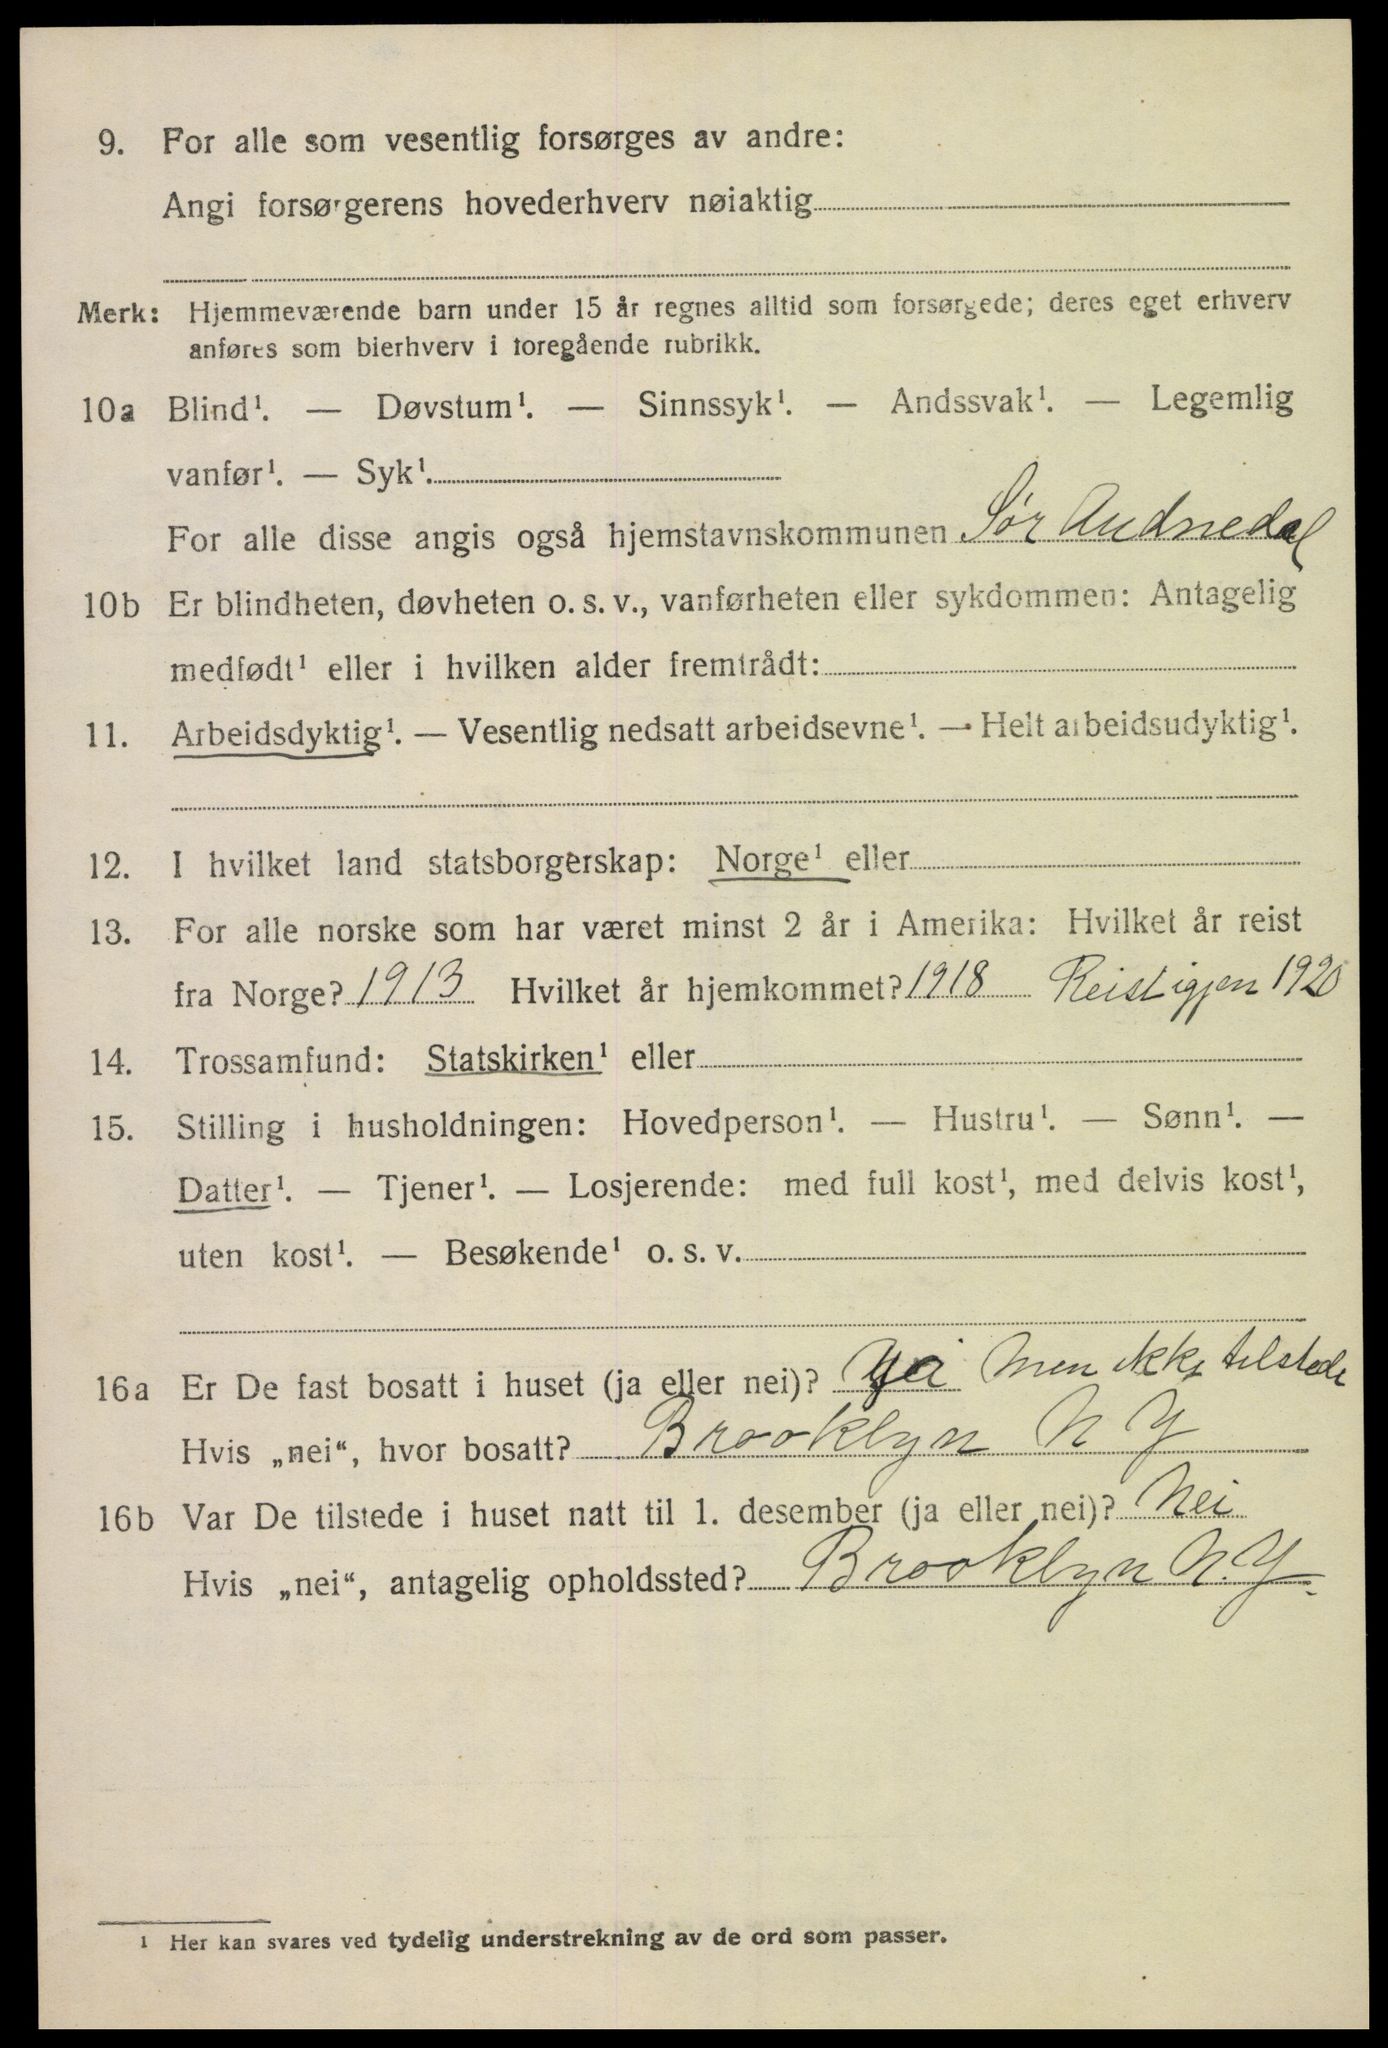 9. For alle som vesentlig forsørges av andre:
Angi forsørgerens hovederhverv nøiaktig
Merk: Hjemmeværende barn under 15 år regnes alltid som forsørgede; deres eget erhverv
anføres som bierhverv i foregående rubrikk.
10a Blind¹. — Døvstum¹. — Sinnssyk¹. — Andssvak¹. — Legemlig
vanfør¹. — Syk¹.
For alle disse angis også hjemstavnskommunen Sør Audnedal
10b Er blindheten, døvheten o. s. v., vanførheten eller sykdommen: Antagelig
medfødt¹ eller i hvilken alder fremtrådt:
11. Arbeidsdyktig¹. — Vesentlig nedsatt arbeidsevne¹. — Helt arbeidsudyktig¹.
12. I hvilket land statsborgerskap: Norge¹ eller
13. For alle norske som har været minst 2 år i Amerika: Hvilket år reist
fra Norge? 1913 Hvilket år hjemkommet? 1918 Reist igjen 1920
14. Trossamfund: Statskirken¹ eller
15. Stilling i husholdningen: Hovedperson¹. — Hustru¹. — Sønn¹. —
Datter¹. — Tjener¹. — Losjerende: med full kost¹, med delvis kost¹,
uten kost¹. — Besøkende¹ o. s. v.
16a Er De fast bosatt i huset (ja eller nei)? men ikke tilstede
Hvis „nei“, hvor bosatt? Brooklyn N Y
16b Var De tilstede i huset natt til 1. desember (ja eller nei)? Nei
Hvis „nei“, antagelig opholdssted? Brooklyn N.Y.
¹ Her kan svares ved tydelig understrekning av de ord som passer.